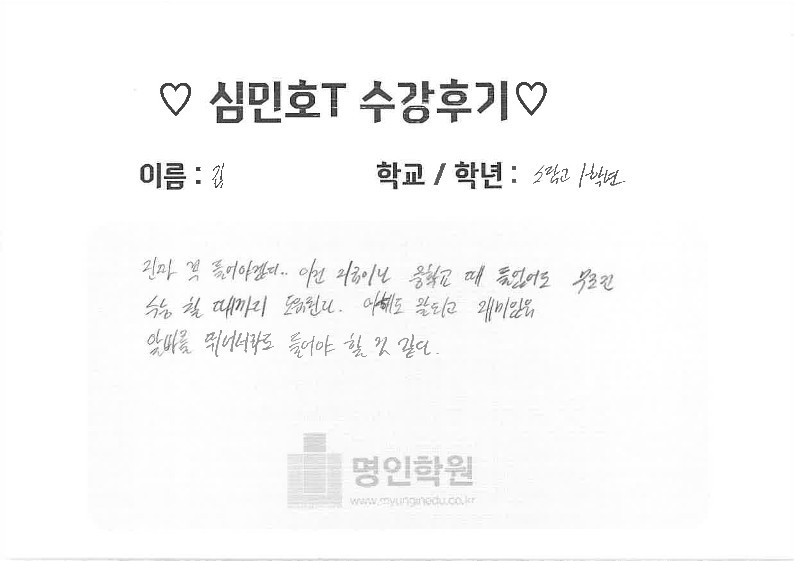 ♡ 심민호T 수강후기♡
이름 : 김
학교 / 학년 : 1학년
진짜 꼭 들어야겠다.. 이건 지금이나 중학교 때 들었어도 무조건
수능 칠 때까지 도움된다. 이해도 잘되고 재미있음
알바를 뛰어서라도 들어야 할 것 같다.
명인학원
www.myunginedu.co.kr